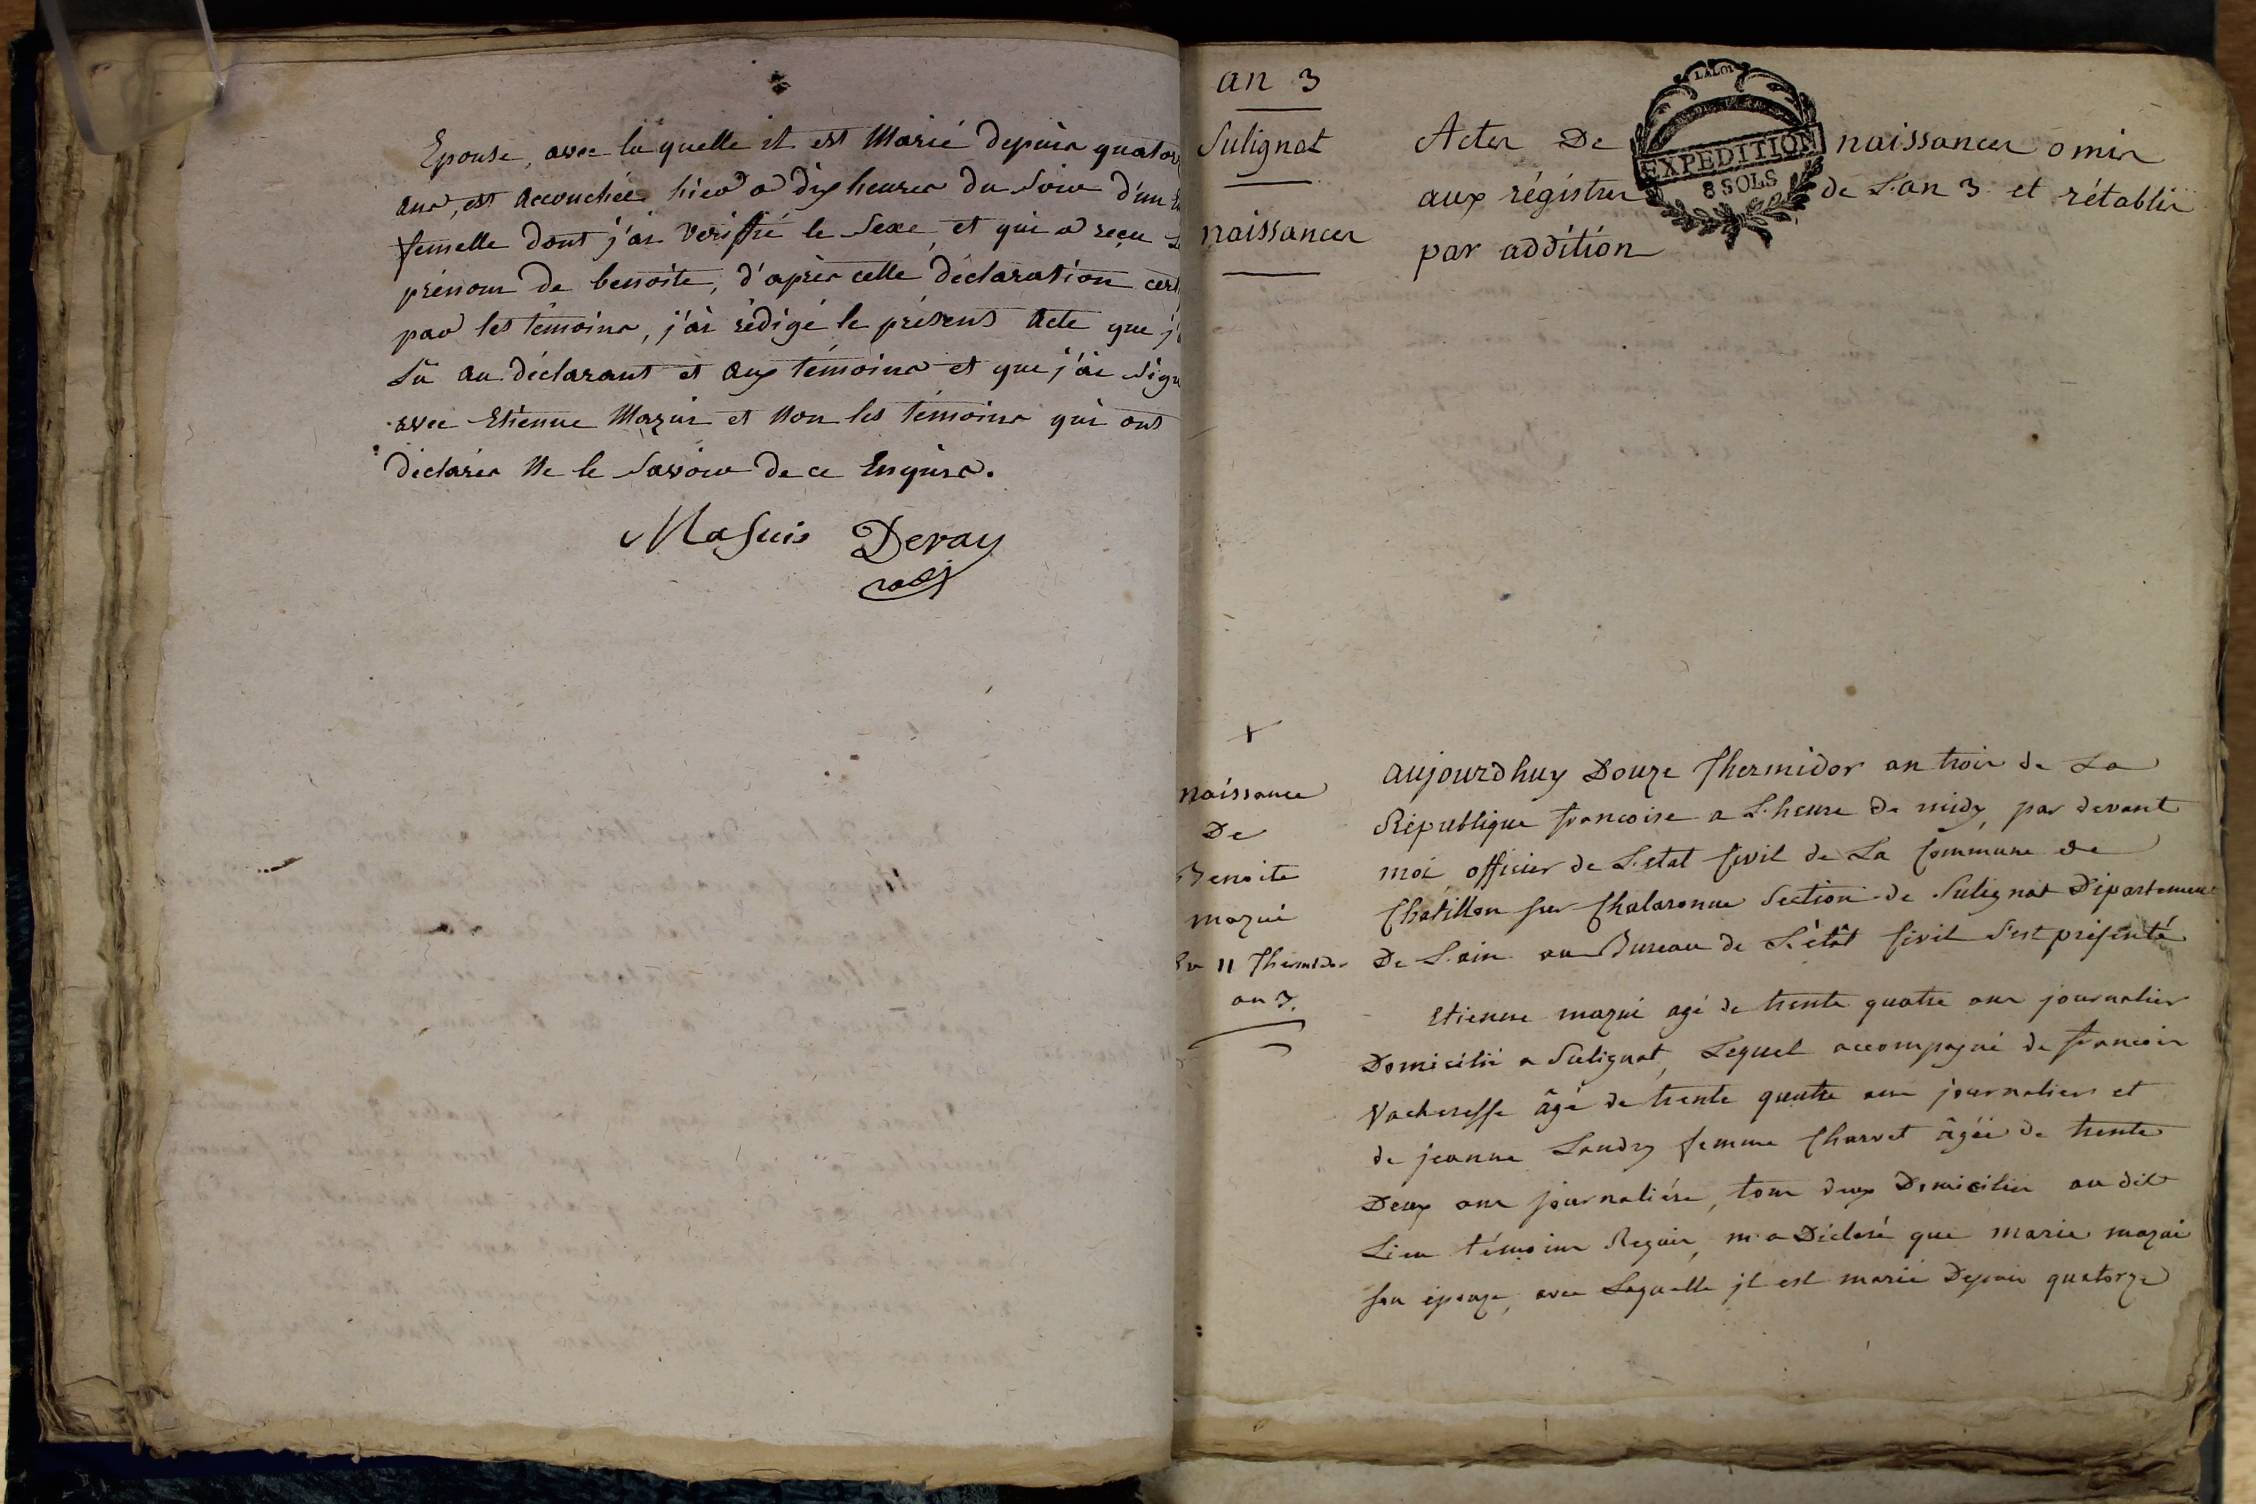 Epouse, avec laquelle il est Marié depuis quator
ans, est accouchée hier a dix heures du Soir d'un
femelle dont j'ai verifié le Sexe, et qui a reçu
prénom de benoite, d'après cette déclaration cert
par les témoins, j'ai rédigé le présent acte que j'
Lû au déclarant et aux témoins et que j'ai Sign
avec Etienne Mazui et Non les témoins qui ont
déclarés Ne le Savoir de ce Enquis.
Masuis Deray
an 3
Sulignat
naissances
Actes De naissances omis
aux régistres de L'an 3 et rétablis
par addition
LA LOI
EXPEDITION
8 SOLS
naissance
De
Benoite
mazui
Du 11 Thermidor
an 3.
aujourdhuy Douze Thermidor an trois de La
République francoise a L'heure de midy, par devant
moi officier de L'etat Civil de La Commune de
Chatillon sur Chalaronne Section de Sulignat Département
De L'ain au Bureau de L'étât Civil s'est présenté
Etienne mazui agé de trente quatre ans journalier
Domicilié a Sulignat, Lequel accompagné de francois
Vacheresse âgé de trente quatre ans journalier et
de jeanne Landry femme Charvet âgée de trente
Deux ans journaliére, tous deux Domiciliés au dit
Lieu témoins Requis, m'a Déclaré que marie mazui
son épouze, avec Laquelle jl est marié Depuis quatorze